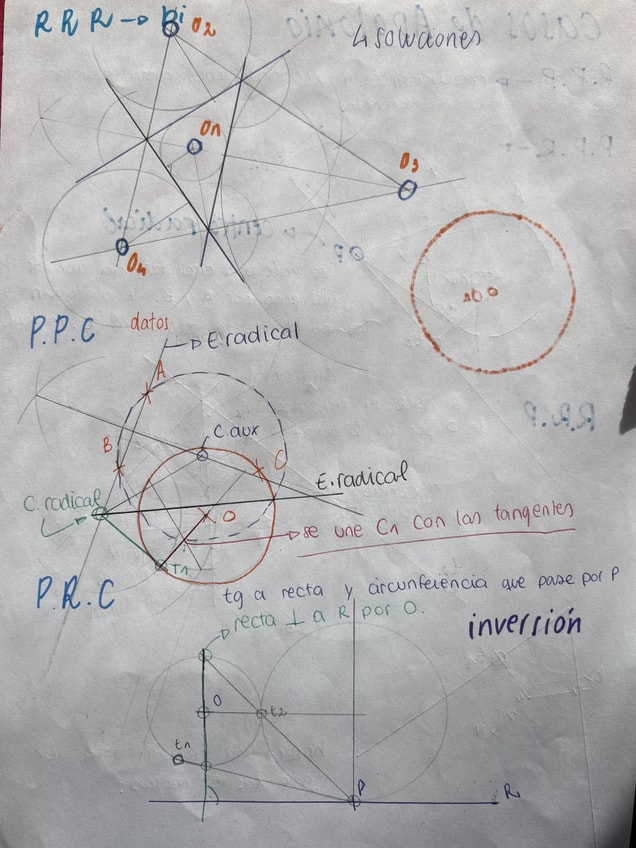 R R R → Bi
O2
4 soluciones
O1
O3
O4
P.P.C datos
E.radical
A
B
C.aux
C
E.radical
C.radical
O
se une C1 con las tangentes
T1
P.R.C
tg a recta y circunferencia que pase por P
recta ⊥ a R por O.
inversión
O
t2
t1
P
R